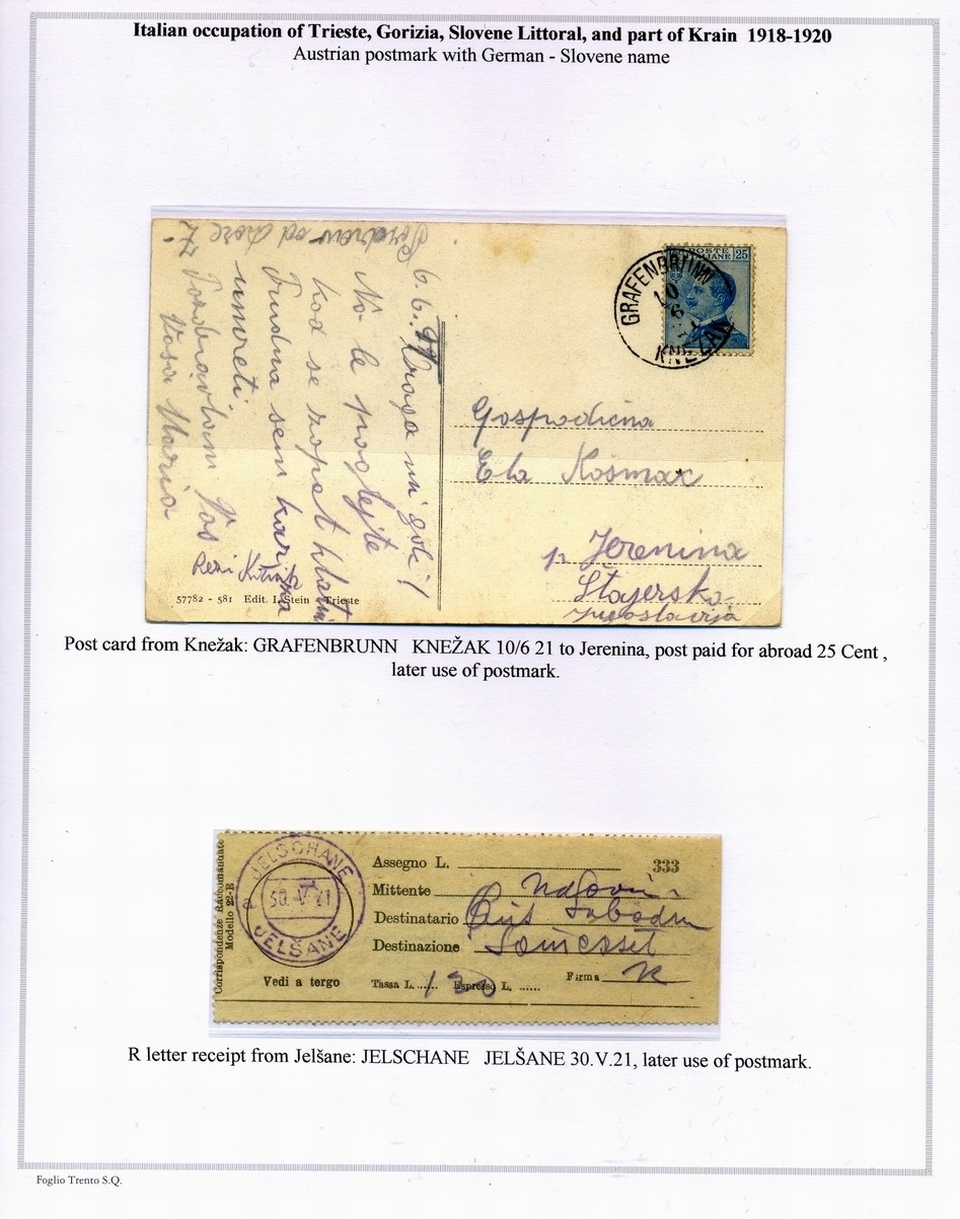 Italian occupation of Trieste, Gorizia, Slovene Littoral, and part of Krain 1918-1920
Austrian postmark with German - Slovene name
POSTE ITALIANE 25
GRAFENBRUNN
10
6
KNEŽAK
Pozdrav od
6. 6. 21
Draga mi
No le poglejte
kod se zopet
Trudna sem kar
umreti.
Pozdravljam Vas
Vaša Maria
Gospodična
Ela Košmax
p. Jerenina
Štajersko
Jugoslavija
57782 - 581 Edit. I. Stein - Trieste
Post card from Knežak: GRAFENBRUNN KNEŽAK 10/6 21 to Jerenina, post paid for abroad 25 Cent ,
later use of postmark.
Corrispondenze Raccomandate
Modello 22-E
JELSCHANE
30.V.21
JELŠANE
Assegno L.
333
Mittente
Destinatario
Destinazione
Vedi a tergo
Tassa L. 1 20 Espresso L.
Firma
R letter receipt from Jelšane: JELSCHANE JELŠANE 30.V.21, later use of postmark.
Foglio Trento S.Q.